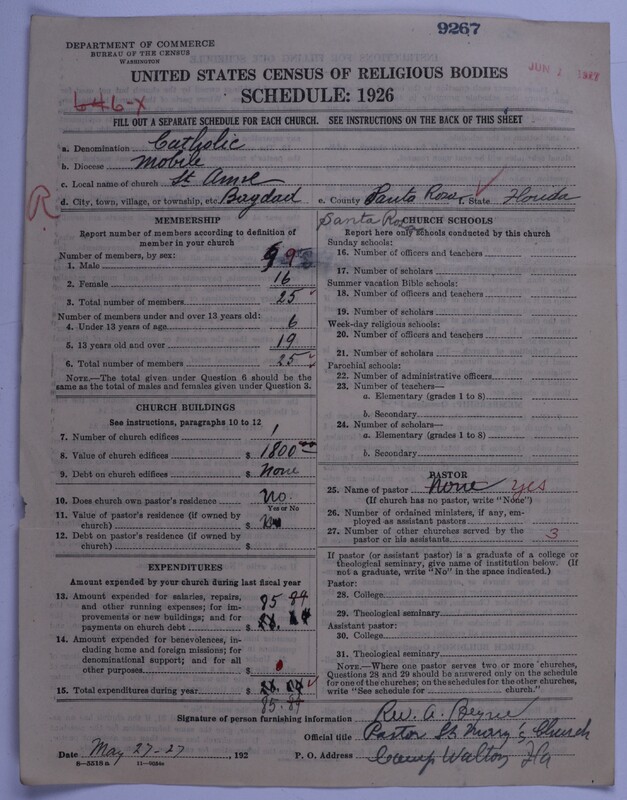 9267
DEPARTMENT OF COMMERCE
BUREAU OF THE CENSUS
WASHINGTON
JUN 1 1927
UNITED STATES CENSUS OF RELIGIOUS BODIES
646-X
SCHEDULE: 1926
FILL OUT A SEPARATE SCHEDULE FOR EACH CHURCH. SEE INSTRUCTIONS ON THE BACK OF THIS SHEET
a. Denomination Catholic
b. Diocese Mobile
c. Local name of church St Anne
R
d. City, town, village, or township, etc. Bagdad e. County Santa Rosa State Florida
Santa Rosa
MEMBERSHIP
Report number of members according to definition of member in your church
Number of members, by sex:
1. Male 9
2. Female 16
3. Total number of members 25
Number of members under and over 13 years old:
4. Under 13 years of age 6
5. 13 years old and over 19
6. Total number of members 25
NOTE.—The total given under Question 6 should be the same as the total of males and females given under Question 3.
CHURCH BUILDINGS
See instructions, paragraphs 10 to 12
7. Number of church edifices 1
8. Value of church edifices $ 1800 00
9. Debt on church edifices $ None
10. Does church own pastor's residence No.
Yes or No
11. Value of pastor's residence (if owned by church) $
12. Debt on pastor's residence (if owned by church) $
EXPENDITURES
Amount expended by your church during last fiscal year
13. Amount expended for salaries, repairs, and other running expenses; for improvements or new buildings; and for payments on church debt $ 85 84
14. Amount expended for benevolences, including home and foreign missions; for denominational support; and for all other purposes $ 0
15. Total expenditures during year $
85.84
CHURCH SCHOOLS
Report here only schools conducted by this church
Sunday schools:
16. Number of officers and teachers
17. Number of scholars
Summer vacation Bible schools:
18. Number of officers and teachers
19. Number of scholars
Week-day religious schools:
20. Number of officers and teachers
21. Number of scholars
Parochial schools:
22. Number of administrative officers
23. Number of teachers—
a. Elementary (grades 1 to 8)
b. Secondary
24. Number of scholars—
a. Elementary (grades 1 to 8)
b. Secondary
PASTOR
25. Name of pastor None Yes
(If church has no pastor, write "None")
26. Number of ordained ministers, if any, employed as assistant pastors
27. Number of other churches served by the pastor or his assistants 3
If pastor (or assistant pastor) is a graduate of a college or theological seminary, give name of institution below. (If not a graduate, write "No" in the space indicated.)
Pastor:
28. College
29. Theological seminary
Assistant pastor:
30. College
31. Theological seminary
NOTE.—Where one pastor serves two or more churches, Questions 28 and 29 should be answered only on the schedule for one of the churches; on the schedules for the other churches, write "See schedule for church."
Signature of person furnishing information Rev. A. Beyne
Official title Pastor St Mary's Church
Date May 27-27, 192 P. O. Address Camp Walton Fla
8—5518a